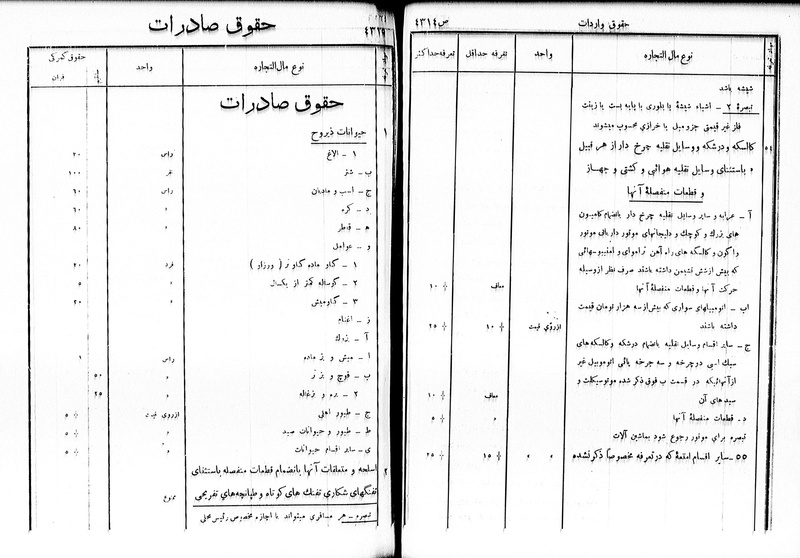 حقوق واردات
ص ٤٣١٤
نوع مال التجاره
واحد
تعرفه حداقل
تعرفه حداکثر
شیشه باشد
تبصرهٔ ۲ - اشیاء شیشهٔ یا بلوری با پایه بست یا زینت
فلز غیر قیمتی جزو مبل یا خرازی محسوب میشوند
٥٤ کالسکه و درشکه و وسایل نقلیه چرخ دار از هر قبیل
باستثنای وسایل نقلیه هوائی و کشتی و جهاز
و قطعات منفصلهٔ آنها
آ - عرابه و سایر وسایل نقلیه چرخ دار بانضمام کامیون
های بزرك و کوچك و دلیجانهای موتور دار باقی موتور
واگون و کالسکه های راه آهن تراموای و امنیبوسهائی
که بیش از شش نشیمن داشته باشند صرف نظر از وسیله
حرکت آنها و قطعات منفصلهٔ آنها معاف ÷ ۱۰
ب - اتومبیلهای سواری که بیش از سه هزار تومان قیمت
داشته باشند ازروی قیمت ÷ ۱۰ ÷ ۲٥
ج - سایر اقسام وسایل نقلیه بانضمام درشکه و کالسکه های
سبك اسبی دوچرخه و سه چرخه پائی اتوموبیل غیر
از آنهائیکه در قسمت ب فوق ذکر شده موتوسیکلت و
سیدهای آن معاف ÷ ۱۰
د - قطعات منفصلهٔ آنها » ÷ ٥
تبصره برای موتور رجوع شود بماشین آلات
٥٥ - سایر اقسام امتعهٔ که در تعرفه مخصوصاً ذکر نشده » » ÷ ۱٥ ÷ ۲٥
حقوق صادرات
نوع مال التجاره
واحد
حقوق گمرکی
قران
حقوق صادرات
۱ حیوانات ذیروح
۱ - الاغ راس ۲۰
ب - شتر نفر ۱۰۰
ج - اسب و مادیان راس ٦۰
د - کره » ٦۰
ه - قاطر » ۸۰
و - عوامل
۱ - گاو ماده گاو نر ( ورزاو ) فرد ۲۰
۲ - گوساله کمتر از یکسال » ٥
۳ - گاومیش » ۲۰
ز - اغنام
آ - بزرك
ا - میش و بز ماده راس ۱
ب - قوچ و بز نر » ٥۰
۲ - بره و بزغاله » ۲٥
ج - طیور اهلی ازروی قیمت ÷ ٥
ط - طیور و حیوانات صید » ÷ ٥
ی - سایر اقسام حیوانات » ÷ ٥
۲ اسلحه و متعلقات آنها بانضمام قطعات منفصله باستثنای
تفنگهای شکاری تفنك های کوتاه و طپانچه های تفریحی ممنوع
تبصره - هر مسافری میتواند با اجازه مخصوص رئیس محلی